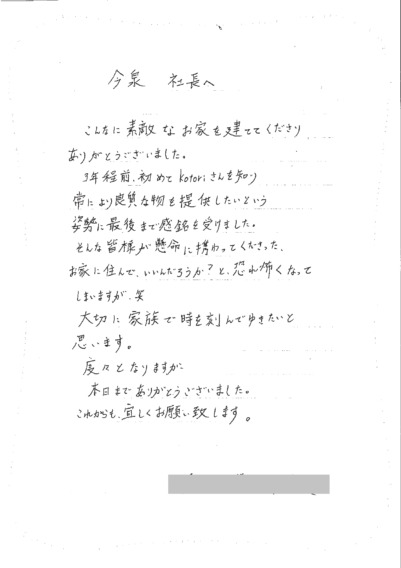 今泉 社長へ
こんなに素敵なお家を建ててくださり
ありがとうございました。
3年程前、初めてkotoriさんを知り
常により良質な物を提供したいという
姿勢に最後まで感銘を受けました。
そんな皆様が懸命に携わってくださった、
お家に住んで、いいんだろうか?と、恐れ怖くなって
しまいますが、笑
大切に家族で時を刻んでゆきたいと
思います。
度々となりますが
本日までありがとうございました。
これからも、宜しくお願い致します。